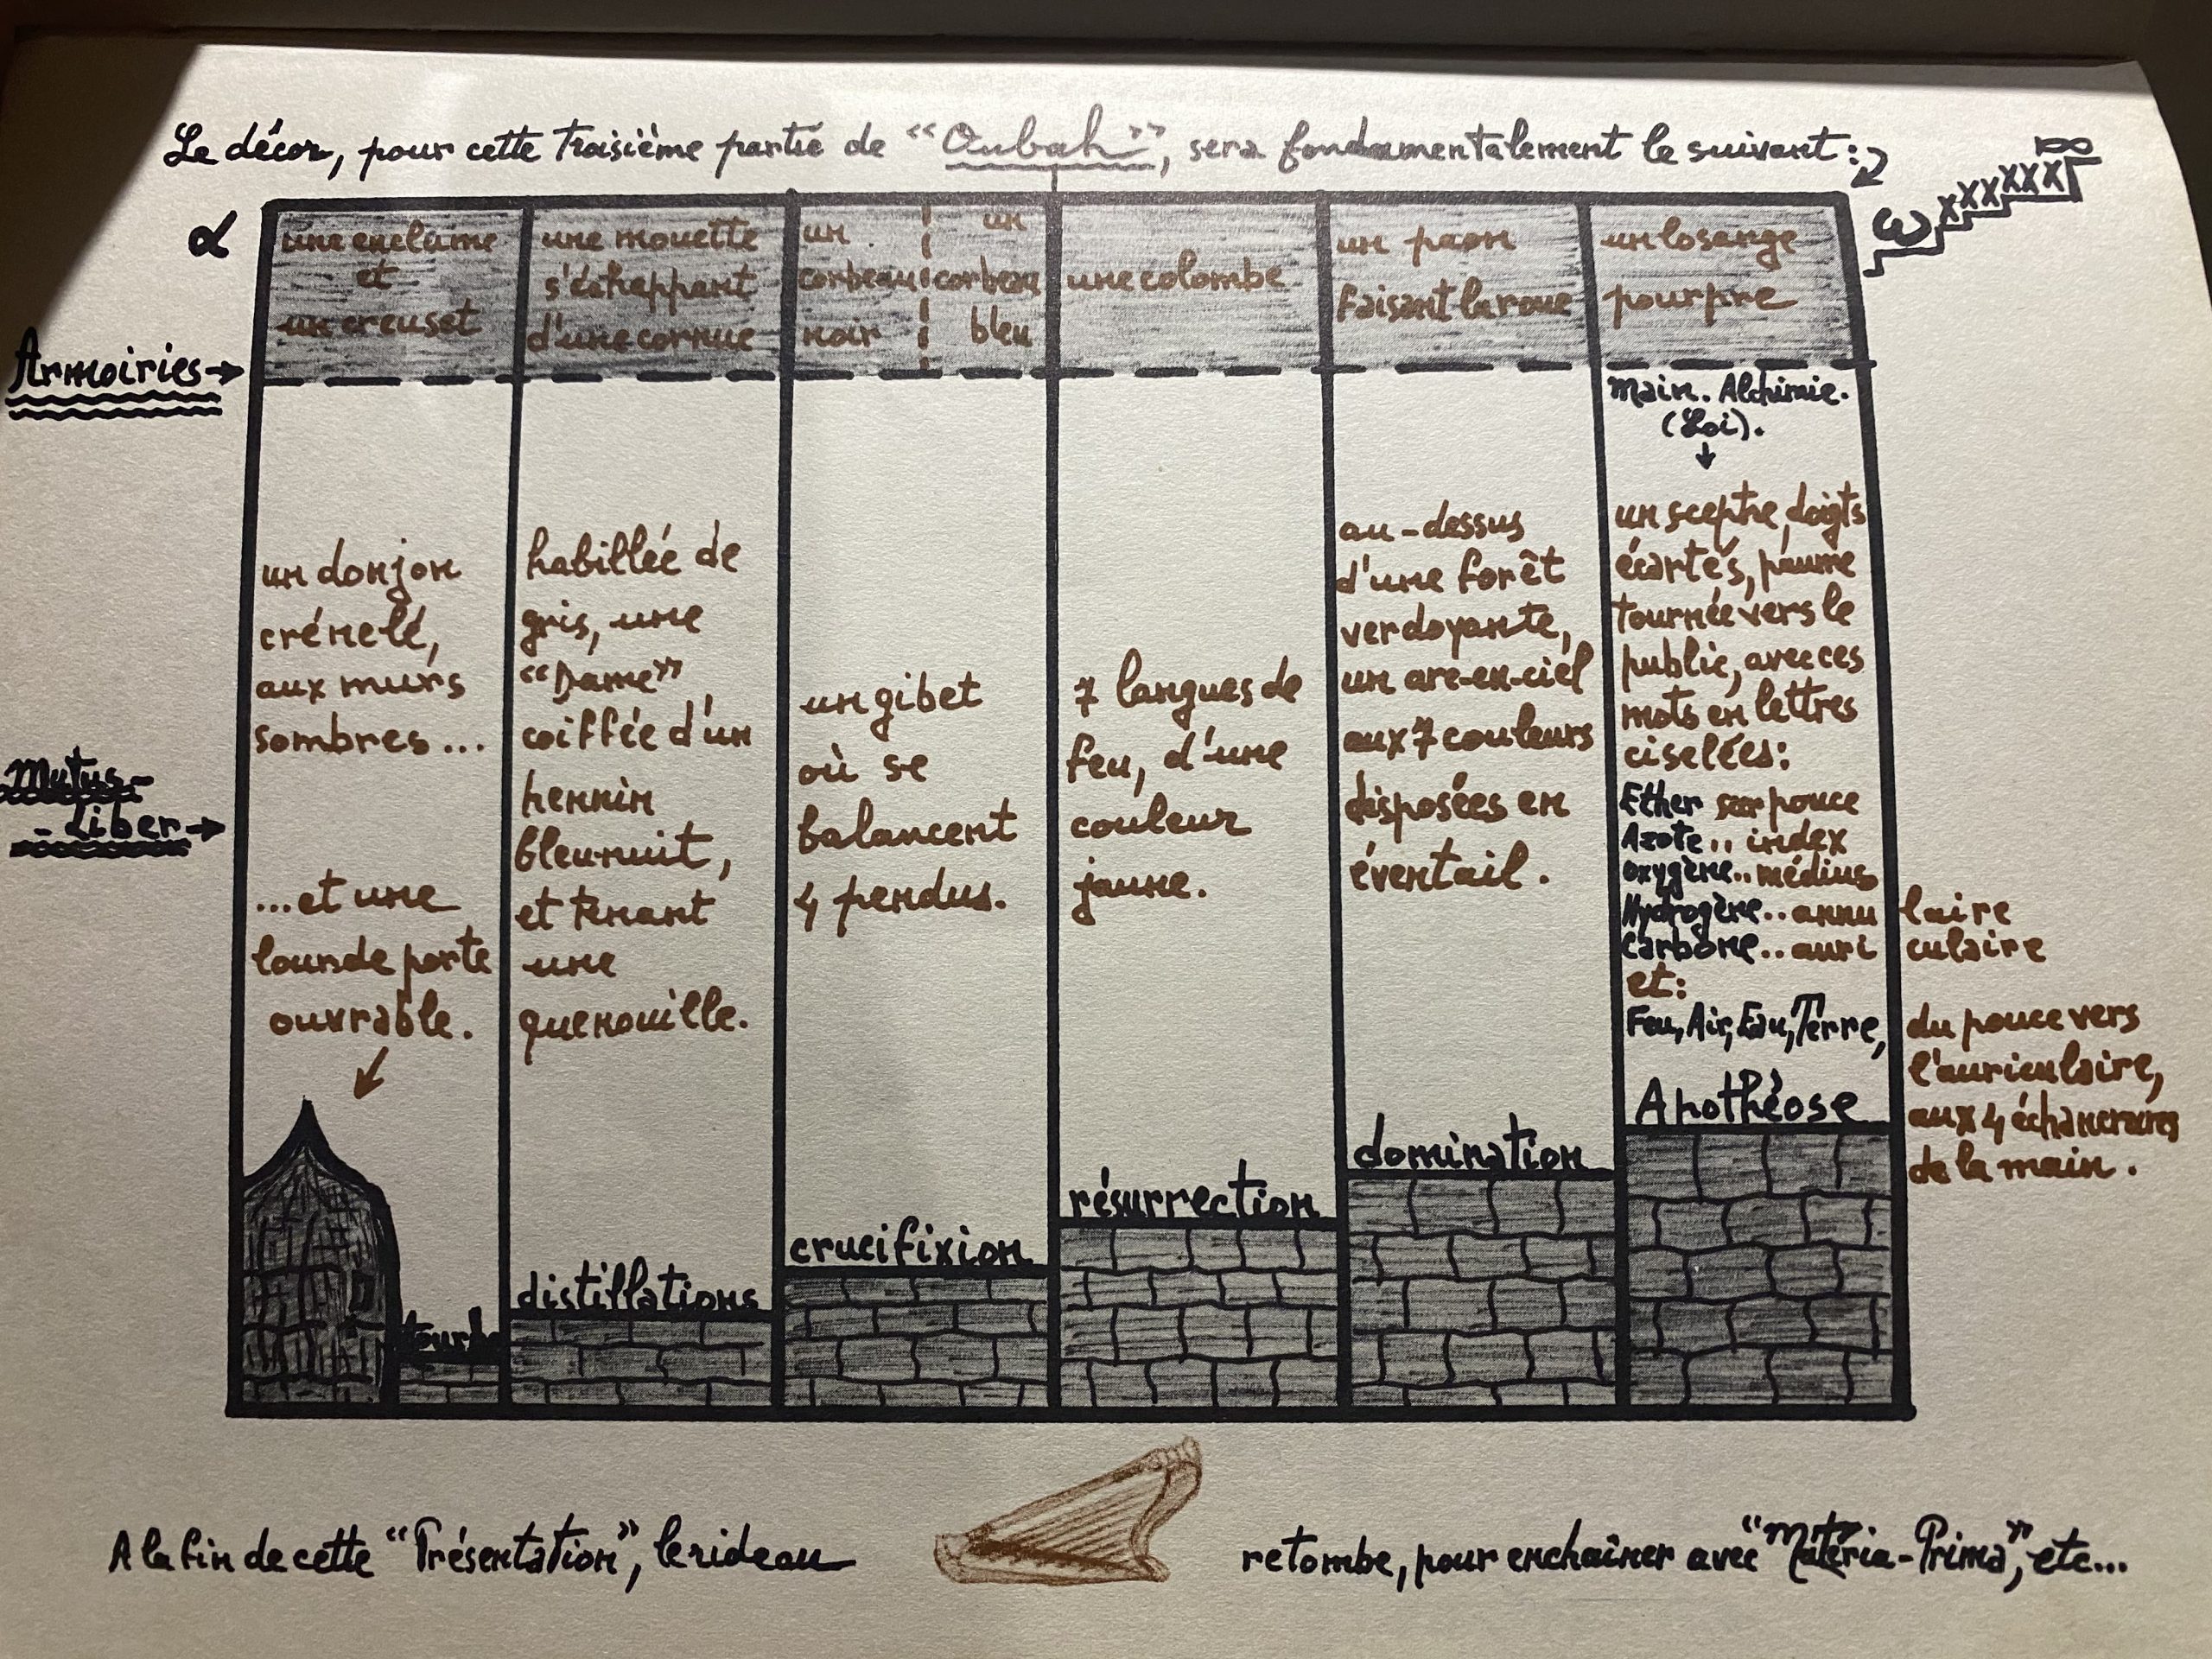 Le décor, pour cette troisième partie de “Oubah”, sera fondamentalement le suivant:
α
ω xxxxxx ∞
Armoiries →
une enclume
et
un creuset
une mouette
s'échappant
d'une cornue
un
corbeau
noir
un
corbeau
bleu
une colombe
un paon
faisant la roue
un losange
pourpre
Mutus-
-Liber →
un donjon
crénelé,
aux murs
sombres...
...et une
lourde porte
ouvrable.
habillée de
gris, une
“Dame”
coiffée d'un
hennin
bleu nuit,
et tenant
une
quenouille.
un gibet
où se
balancent
4 pendus.
7 langues de
feu, d'une
couleur
jaune.
au-dessus
d'une forêt
verdoyante,
un arc-en-ciel
aux 7 couleurs
disposées en
éventail.
Main. Alchimie.
(Loi).
↓
un sceptre, doigts
écartés, paume
tournée vers le
public, avec ces
mots en lettres
ciselées:
Ether sur pouce
Azote .. index
oxygène .. médius
Hydrogène .. annulaire
Carbone .. auriculaire
et:
Feu, Air, Eau, Terre, du pouce vers
l'auriculaire,
aux 4 échancrures
de la main.
distillations
crucifixion
résurrection
domination
Apothéose
A la fin de cette “Présentation”, le rideau
retombe, pour enchaîner avec “Matéria-Prima”, etc...